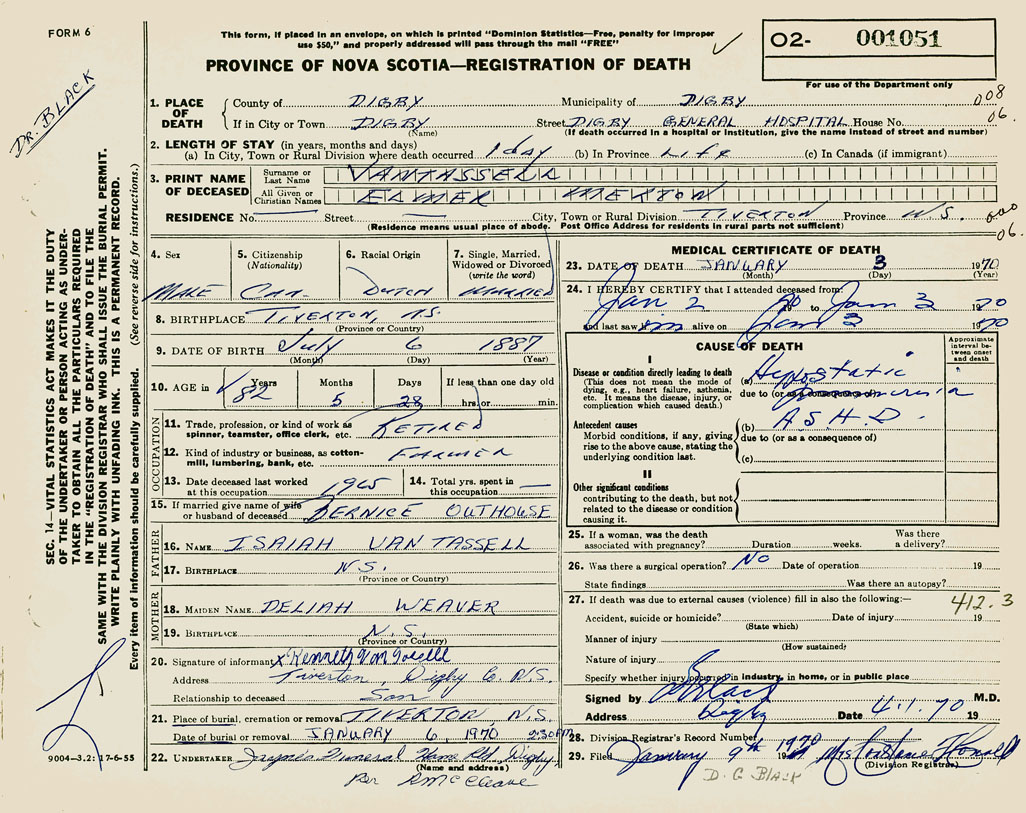 FORM 6
This form, if placed in an envelope, on which is printed "Dominion Statistics—Free, penalty for improper
use $50," and properly addressed will pass through the mail "FREE"
PROVINCE OF NOVA SCOTIA—REGISTRATION OF DEATH
02- 001051
For use of the Department only
DR. BLACK
SEC. 14—VITAL STATISTICS ACT MAKES IT THE DUTY
OF THE UNDERTAKER OR PERSON ACTING AS UNDER-
TAKER TO OBTAIN ALL THE PARTICULARS REQUIRED
IN THE "REGISTRATION OF DEATH" AND TO FILE THE
SAME WITH THE DIVISION REGISTRAR WHO SHALL ISSUE THE BURIAL PERMIT.
WRITE PLAINLY WITH UNFADING INK. THIS IS A PERMANENT RECORD.
Every item of information should be carefully supplied. (See reverse side for instructions.)
1. PLACE OF DEATH
County of DIGBY Municipality of DIGBY 008
If in City or Town DIGBY Street DIGBY GENERAL HOSPITAL House No. 06.
(Name) (If death occurred in a hospital or institution, give the name instead of street and number)
2. LENGTH OF STAY (in years, months and days)
(a) In City, Town or Rural Division where death occurred 1 day (b) In Province Life (c) In Canada (if immigrant)
3. PRINT NAME OF DECEASED
Surname or Last Name VANTASSELL
All Given or Christian Names ELMER MERTON
RESIDENCE No. — Street — City, Town or Rural Division TIVERTON Province N.S. 000
(Residence means usual place of abode. Post Office Address for residents in rural parts not sufficient) 06.
4. Sex MALE
5. Citizenship (Nationality) Can.
6. Racial Origin DUTCH
7. Single, Married, Widowed or Divorced (write the word) MARRIED
8. BIRTHPLACE TIVERTON, N.S.
(Province or Country)
9. DATE OF BIRTH July 6 1887
(Month) (Day) (Year)
10. AGE in Years 82 Months 5 Days 28 If less than one day old hrs. or min.
OCCUPATION
11. Trade, profession, or kind of work as spinner, teamster, office clerk, etc. RETIRED
12. Kind of industry or business, as cotton-mill, lumbering, bank, etc. FARMER
13. Date deceased last worked at this occupation 1965
14. Total yrs. spent in this occupation —
15. If married give name of wife or husband of deceased BERNICE OUTHOUSE
FATHER
16. NAME ISAIAH VAN TASSELL
17. BIRTHPLACE N.S.
(Province or Country)
MOTHER
18. MAIDEN NAME DELIAH WEAVER
19. BIRTHPLACE N.S.
(Province or Country)
20. Signature of informant x Kenneth Van Tassell
Address Tiverton, Digby Co. N.S.
Relationship to deceased Son
21. Place of burial, cremation or removal TIVERTON, N.S.
Date of burial or removal JANUARY 6, 1970 2:30PM
22. UNDERTAKER Funeral Home Ltd. Digby
(Name and address)
Per RMcCleave
9004—3.2: 17-6-55
MEDICAL CERTIFICATE OF DEATH
23. DATE OF DEATH JANUARY 3 1970
(Month) (Day) (Year)
24. I HEREBY CERTIFY that I attended deceased from:
Jan 2 70 to Jan 3 1970
and last saw him alive on Jan 3 1970
CAUSE OF DEATH
Approximate interval between onset and death
I
Disease or condition directly leading to death
(This does not mean the mode of dying, e.g., heart failure, asthenia, etc. It means the disease, injury, or complication which caused death.)
(a) Hypostatic
due to (or as a consequence of) pneumonia
Antecedent causes
Morbid conditions, if any, giving rise to the above cause, stating the underlying condition last.
(b) A.S.H.D.
due to (or as a consequence of)
(c)
II
Other significant conditions
contributing to the death, but not related to the disease or condition causing it.
25. If a woman, was the death associated with pregnancy? Duration weeks. Was there a delivery?
26. Was there a surgical operation? No Date of operation 19
State findings Was there an autopsy?
27. If death was due to external causes (violence) fill in also the following:— 412.3
Accident, suicide or homicide? Date of injury 19
(State which)
Manner of injury
(How sustained)
Nature of injury
Specify whether injury occurred in industry, in home, or in public place
Signed by Black M.D.
Address Digby Date 4.1.70 19
28. Division Registrar's Record Number
29. Filed January 9th 1970 19 Mrs
(Division Registrar)
D. G BLACK